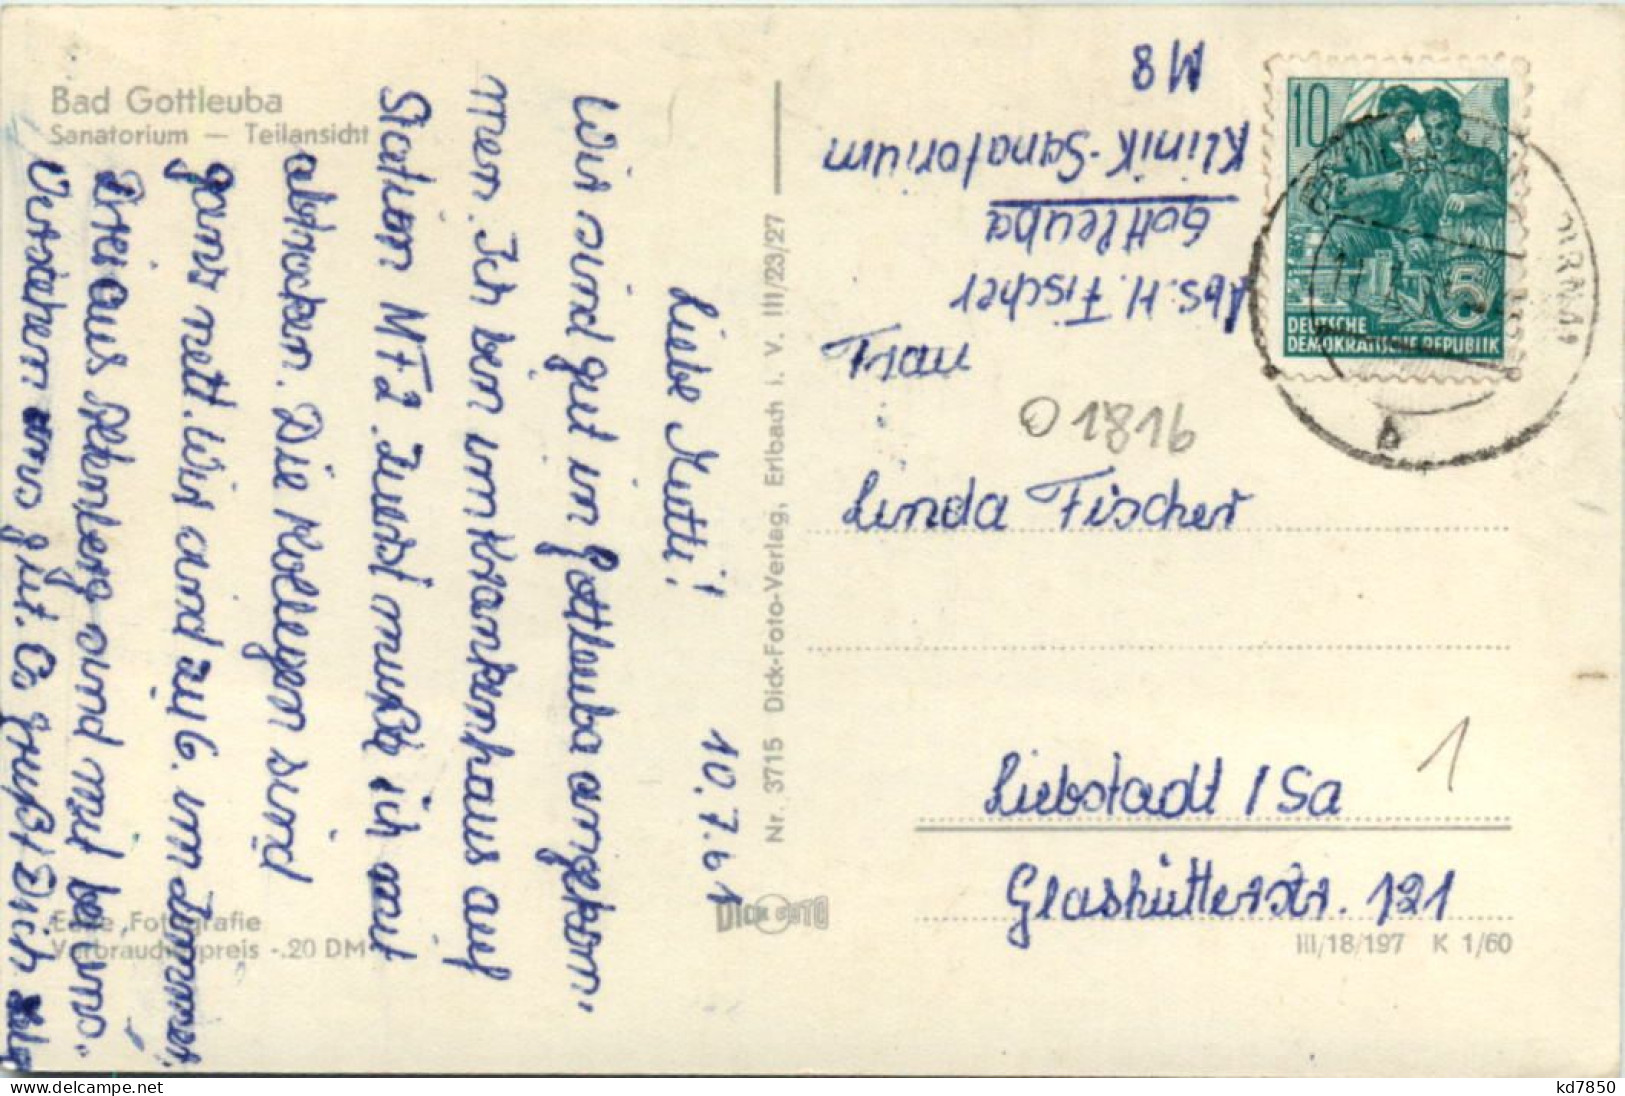 Bad Gottleuba
Sanatorium — Teilansicht
10.7.61
Liebe Mutti!
Wir sind gut in Gottleuba angekom-
men. Ich bin im Krankenhaus auf
Station M72. Zuerst mußte ich mit
abtrocken. Die Kollegen sind
ganz nett. Wir sind zu 6. im Zimmer.
aus Sternberg sind mit beim
Verstehn uns gut. Es grüßt Dich
Echte Fotografie
Verbraucherpreis -.20 DM
Nr. 3715 Dick-Foto-Verlag, Erlbach i. V. III/23/27
DICK FOTO
Abs. H. Fischer
Gottleuba
Klinik-Sanatorium
M 8
10
5
DEUTSCHE
DEMOKRATISCHE REPUBLIK
b
O 1816
Linda Fischer
Liebstadt / Sa
1
Glashütterstr. 121
III/18/197 K 1/60
kd7850